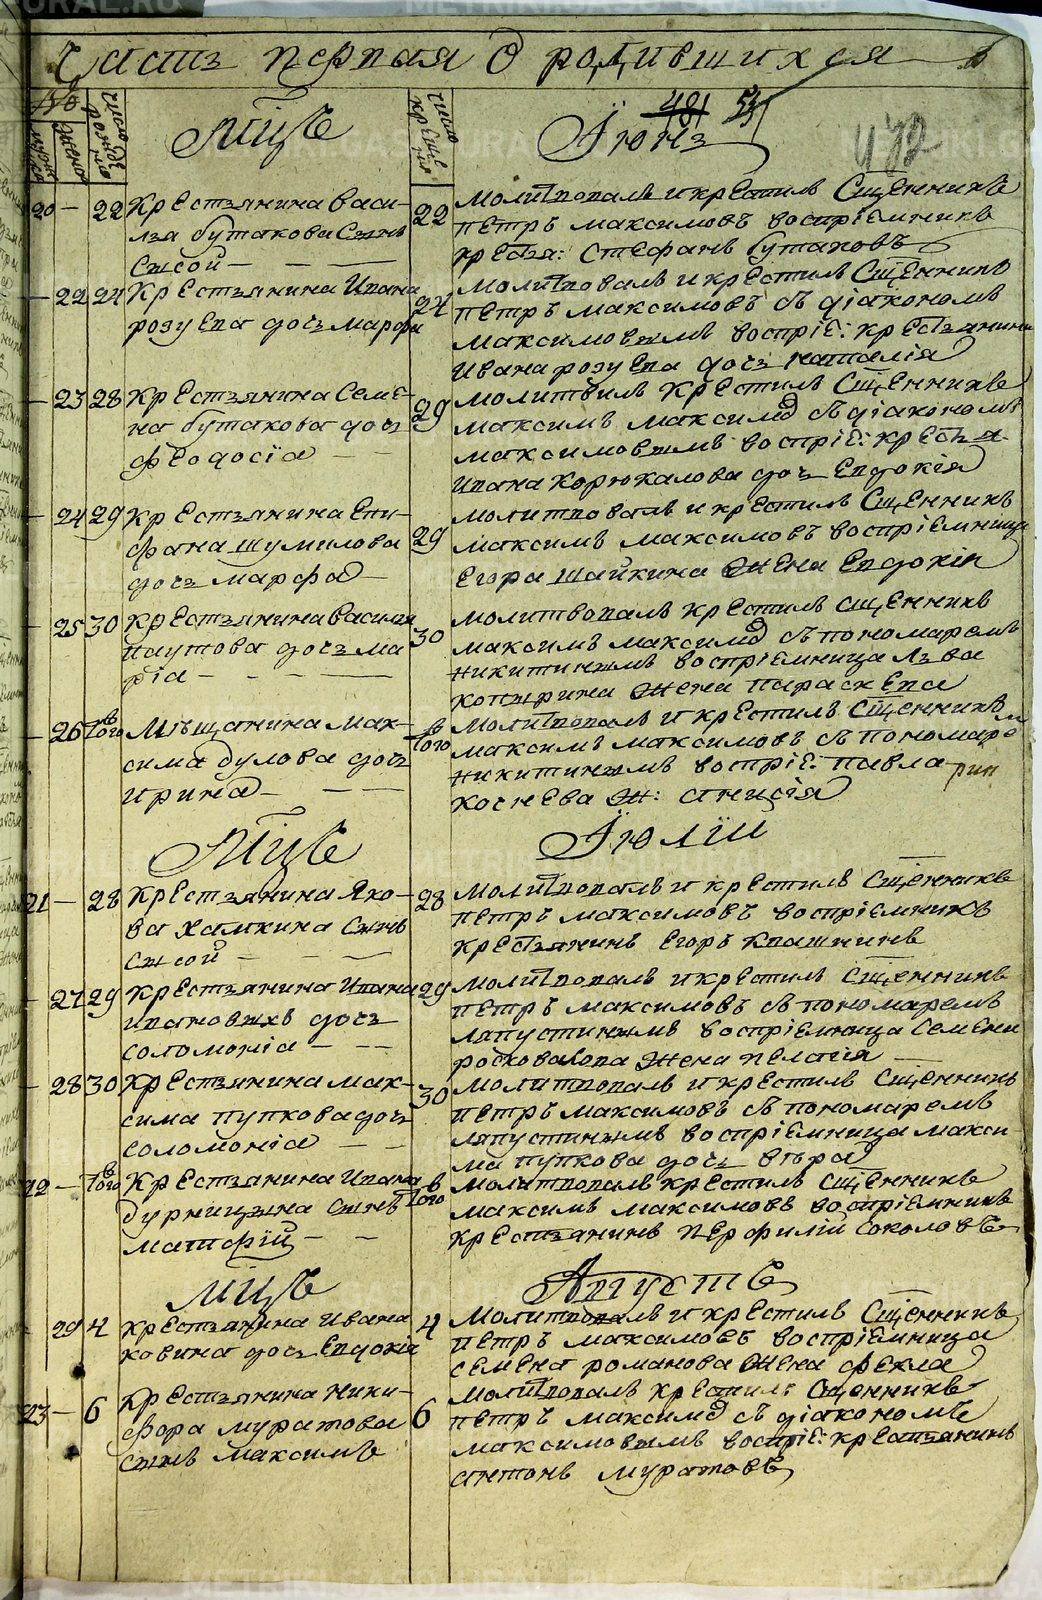 Часть первая О родившихся
№
мужск
женска
число рожде нiя
Мцъ
число креще нiя
481 53
Їюнь
472
20 — 22 Крестьянина Васи-
лья бутакова Сынъ
Сысой —
22 Молитвовалъ и крестилъ Сщенникъ
петръ максимовъ воспрiемникъ
крестья: Стефанъ бутаковъ
— 22 24 Крестьянина Ивана
розуева дочь марфа
24 Молитвовалъ и крестилъ Сщенникъ
петръ максимовъ съ дiакономъ
максимовымъ воспрiе: крестьянина
Ивана розуева дочь наталiя
— 23 28 Крестьянина Семе-
на бутакова дочь
феодосiа — —
29 молитвилъ Крестилъ Сщенникъ
максимъ максимо съ дiакономъ
максимовымъ воспрiе: крестья
Ивана Корюкалова доч Евдокiя
— 24 29 Крестьянина Епи-
фана шумилова
дочь марфа —
29 молитвовалъ и крестилъ Сщенникъ
максимъ максимовъ воспрiемница
Егора шайкина жена Евдокiя
— 25 30 крестьянина Василья
паутова дочь ма
рiа — — —
30 молитвовалъ крестилъ сщенникъ
максимъ максимо съ пономаремъ
никитинымъ воспрiемница Льва
копырина жена параскева
— 26 въ того Мѣщанина мак-
сима дулова дочь
ирина — — —
въ того Молитвовалъ и крестилъ сщенникъ
максимъ максимовъ съ пономаре мъ
никитинымъ воспрiе: павла
коснева ж: анисiя
Мцъ
Їюлїй
21 — 28 крестьянина Яко-
ва хамкина сынъ
сысой — — —
28 молитвовалъ и крестилъ сщенникъ
петръ максимовъ воспрiемникъ
крестьянинъ егоръ квашнинъ
— 27 29 крестьянина Ивана
ивановыхъ дочь
соломонiа — —
29 молитвовалъ и крестилъ сщенникъ
петръ максимовъ съ пономаремъ
лапустинымъ воспрiемница семена
жена пелагiя —
— 28 30 крестьянина мак-
сима пупкова дочь
соломонiа — —
30 молитвовалъ и крестилъ сщенникъ
петръ максимовъ съ пономаремъ
лапустинымъ воспрiемница макси
ма пупкова дочь вѣра
22 — въ того крестьянина ивана
бурницына сынъ
матфiй — —
въ того молитвовалъ крестилъ сщенникъ
максимъ максимовъ воспрiемникъ
крестьянинъ перфилiй соколовъ
Мцъ
Августъ
29 4 крестьянина ивана
ковина дочь Евдокiя
4 молитвовалъ и крестилъ Сщенникъ
петръ максимовъ воспрiемница
семена романова жена фекла
23 — 6 Крестьянина ники-
фора муратова
сынъ максимъ
6 молитвовалъ крестилъ Сщенникъ
петръ максимо съ дiакономъ
максимовымъ воспрiе: крестьянинъ
антонъ муратовъ